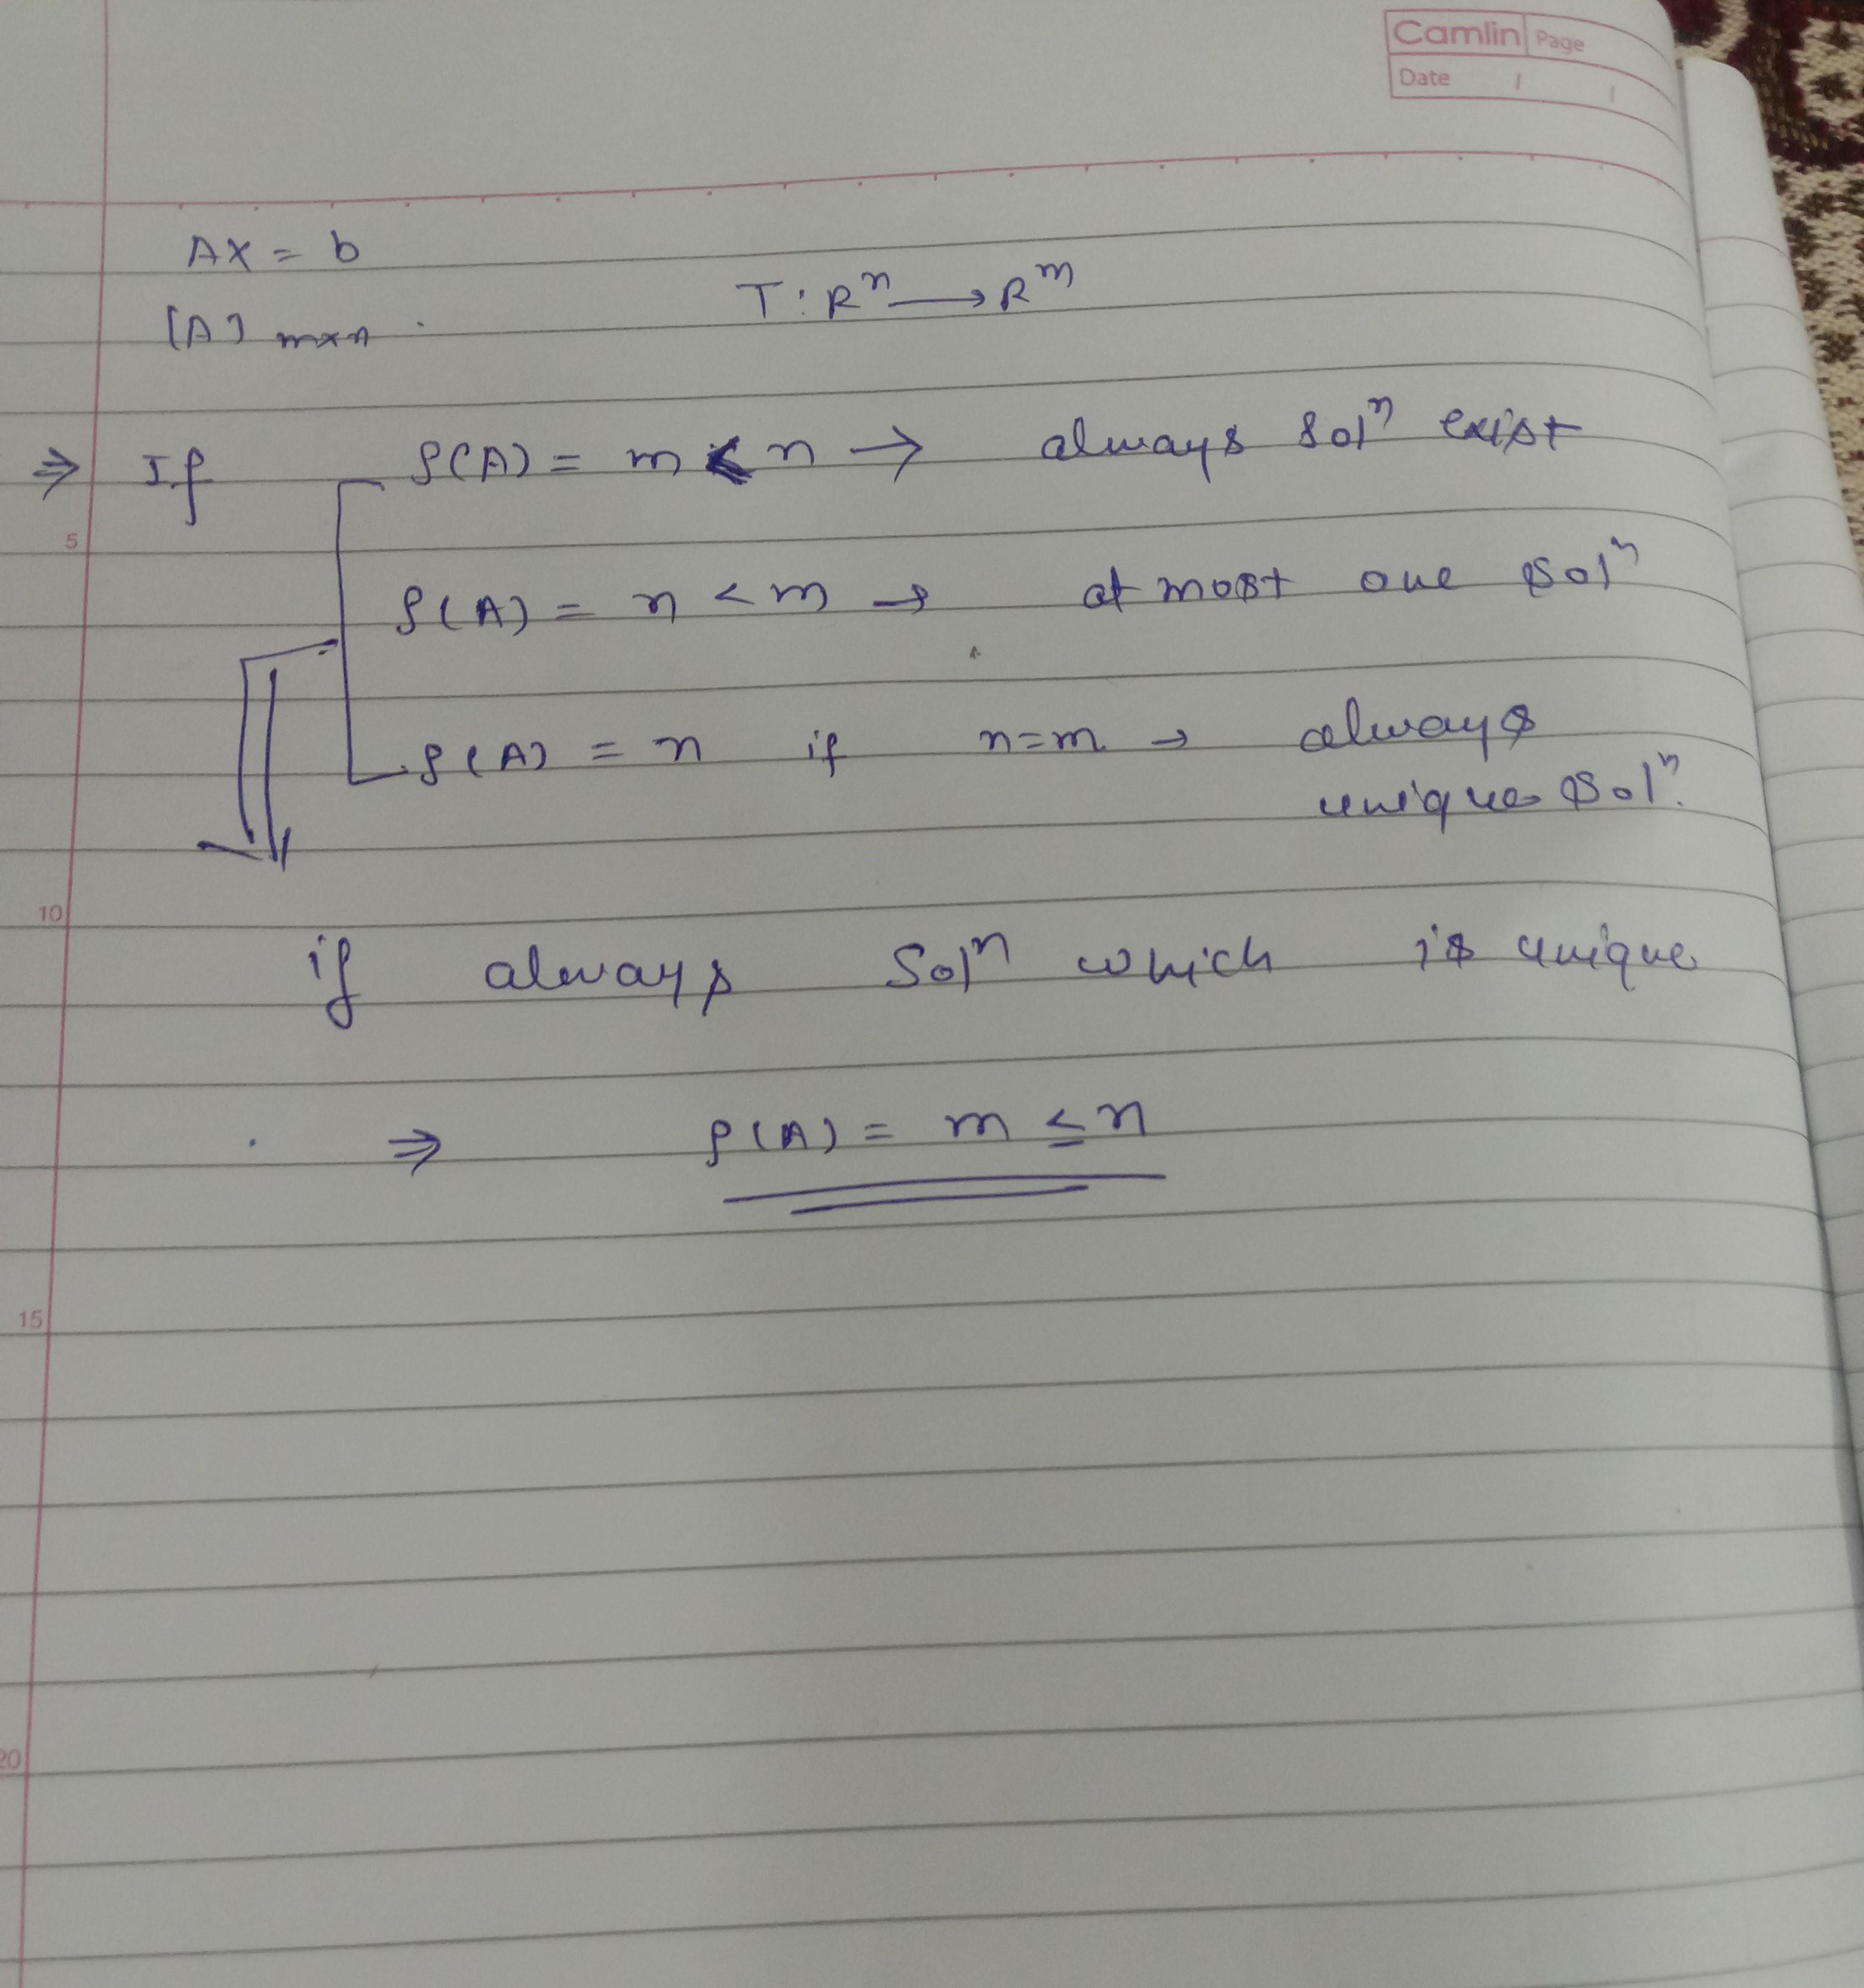 Camlin Page
Date / /
AX = b
T : Rⁿ → Rᵐ
[A] m×n .
⇒ If ρ(A) = m < n → always solⁿ exist
5
ρ(A) = n < m → at most one solⁿ
ρ(A) = n if n=m → always
unique solⁿ.
10
if always Solⁿ which is unique
⇒ ρ(A) = m ≤ n
15
20